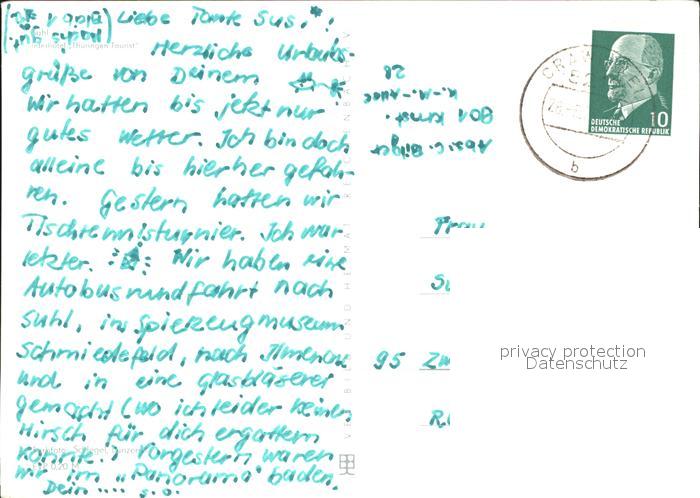 Liebe Tante Sus.!
Herzliche Urlaubs-
grüße von Deinem
Wir hatten bis jetzt nur
gutes Wetter. Ich bin doch
alleine bis hierher gefah-
ren. Gestern hatten wir
Tischtennisturnier. Ich war
letzter. Wir haben eine
Autobusrundfahrt nach
Suhl, ins Spielzeugmuseum
Schmiedefeld, nach Ilmenau
und in eine Glasbläserei
gemacht (wo ich leider keinen
Hirsch für dich ergattern
konnte.) Vorgestern waren
wir im „Panorama" baden.
Dein .... s.o.
Suhl
Interhotel „Thüringen Tourist"
EVP 0,20 M
VERLAG BILD UND HEIMAT REICHENBACH
Abs. C. Bilger
K.-M.-Allee
28
DEUTSCHE
DEMOKRATISCHE REPUBLIK
10
b
Frau
95
privacy protection
Datenschutz